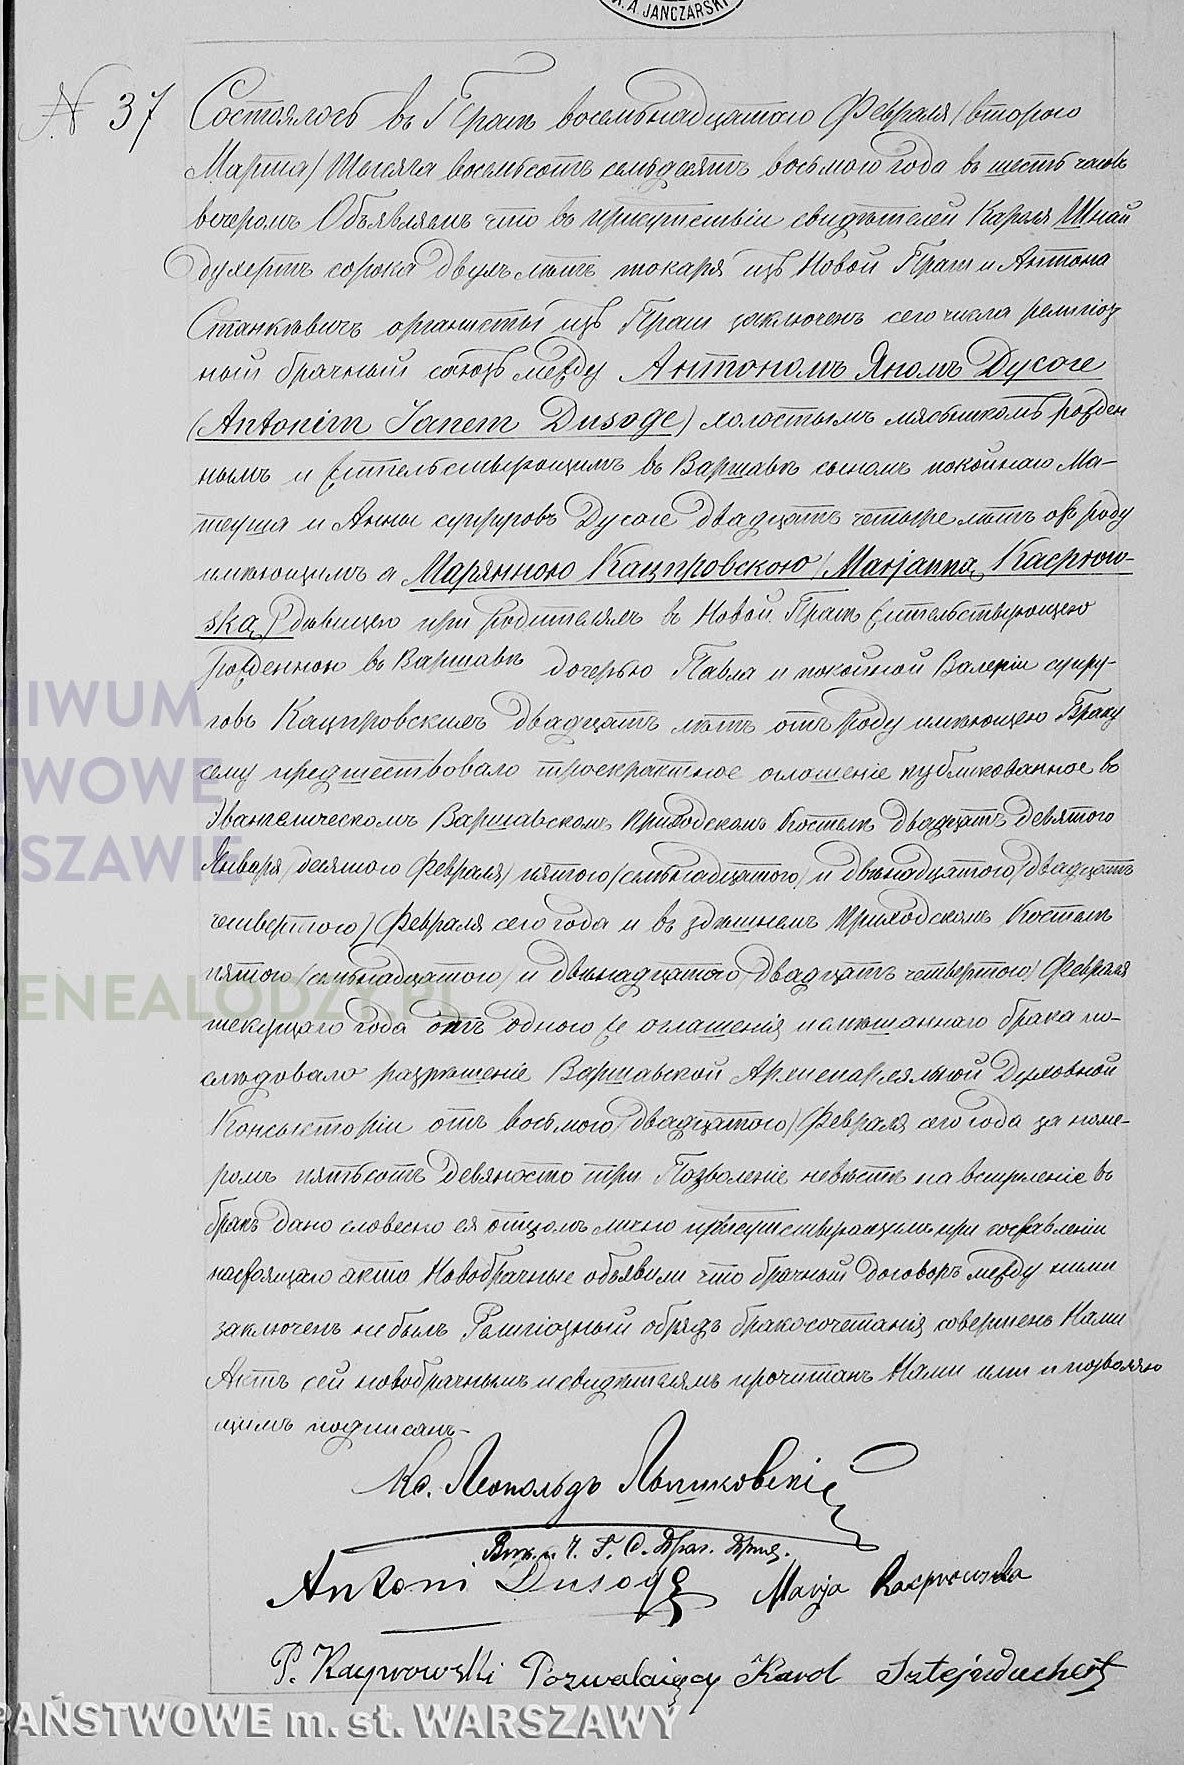 K. A. JANCZARSKI
№ 37 Состоялось въ Праге восемьнадцатаго Февраля /второго
Марта/ Тысяча восемьсотъ семьдесятъ восьмого года въ шесть часовъ
вечеромъ Объявляемъ что въ присутствіи свидѣтелей Кароля Штай
духертъ сорока двухъ лѣтъ токаря изъ Новой Праги и Антона
Станкѣвичъ органисты изъ Праги заключенъ сего числа религіоз
ный брачный союзъ между Антономъ Яномъ Дусоге
(Antonim Janem Dusoge) холостымъ мясникомъ рожден
нымъ и жительствующимъ въ Варшавѣ сыномъ покойнаго Ма-
теуша и Анны супруговъ Дусоге двадцать четыре лѣтъ отъ роду
имѣющимъ а Марянною Кацпровскою /Marjanną Kacprow-
ską/ дѣвицею при родителяхъ въ Новой Прагѣ жительствующею
рожденною въ Варшавѣ дочерью Павла и покойной Валеріи супру-
говъ Кацпровскихъ двадцать лѣтъ отъ роду имѣющею Браку
сему предшествовало троекратное оглошеніе публикованное въ
Эвангелическомъ Варшавскомъ Приходскомъ Костелѣ двадцать девятого
Января /десятого Февраля/ пятого /семьнадцатого/ и двѣнадцатого /двадцать
четвертого/ Февраля сего года и въ здѣшнемъ Приходскомъ Костелѣ
пятого /семьнадцатого/ и двѣнадцатого /двадцать четвертого/ Февраля
текущаго года отъ одного же оглашенія и смѣшаннаго брака по-
слѣдовало разрѣшеніе Варшавской Архиепархіяльной Духовной
Консисторіи отъ восьмого /двадцатого/ Февраля сего года за номе-
ромъ пятьсотъ девяносто три Позволеніе невѣстѣ на вступленіе въ
бракъ дано словесно ея отцомъ лично присутствующимъ при составленіи
настоящаго акта Новобрачные объявили что брачный договоръ между ними
заключенъ не былъ Религіозный обрядъ бракосочетанія совершенъ Нами
Актъ сей новобрачнымъ и свидѣтелямъ прочитанъ Нами ими и позволяю
щимъ подписанъ-
Кс. Леопольдъ Лышковскій
Antoni Dusoge Marja Kacprowska
P. Kacprowski Pozwalający Karol Sztejduchert
HIWUM
TWOWE
RSZAWIE
GENEALODZY.PL
PAŃSTWOWE m. st. WARSZAWY